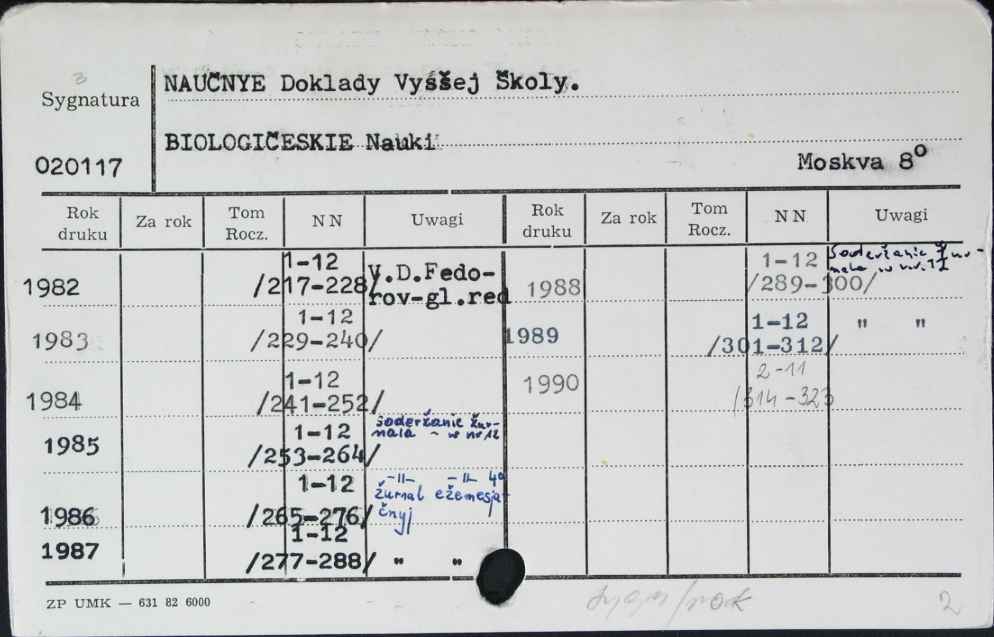 3
Sygnatura
NAUČNYE Doklady Vyššej Školy.
BIOLOGIČESKIE Nauki
020117
Moskva 8°
Rok druku Za rok Tom Rocz. NN Uwagi Rok druku Za rok Tom Rocz. NN Uwagi
1982 1-12 /217-228/ V.D.Fedo-
rov-gl.red
1983 1-12 /229-240/
1984 1-12 /241-252/
1985 1-12 /253-264/ soderžanie žur-
nala - w nr 12
1986 1-12 /265-276/ -II- -II- 4°
žurnal ežemesja-
čnyj
1987 1-12 /277-288/ " "
1988 1-12 /289-300/ Soderžanie žur-
nala w nr. 12
1989 1-12 /301-312/ " "
1990 2-11 /314-323
ZP UMK — 631 82 6000
/rok
2